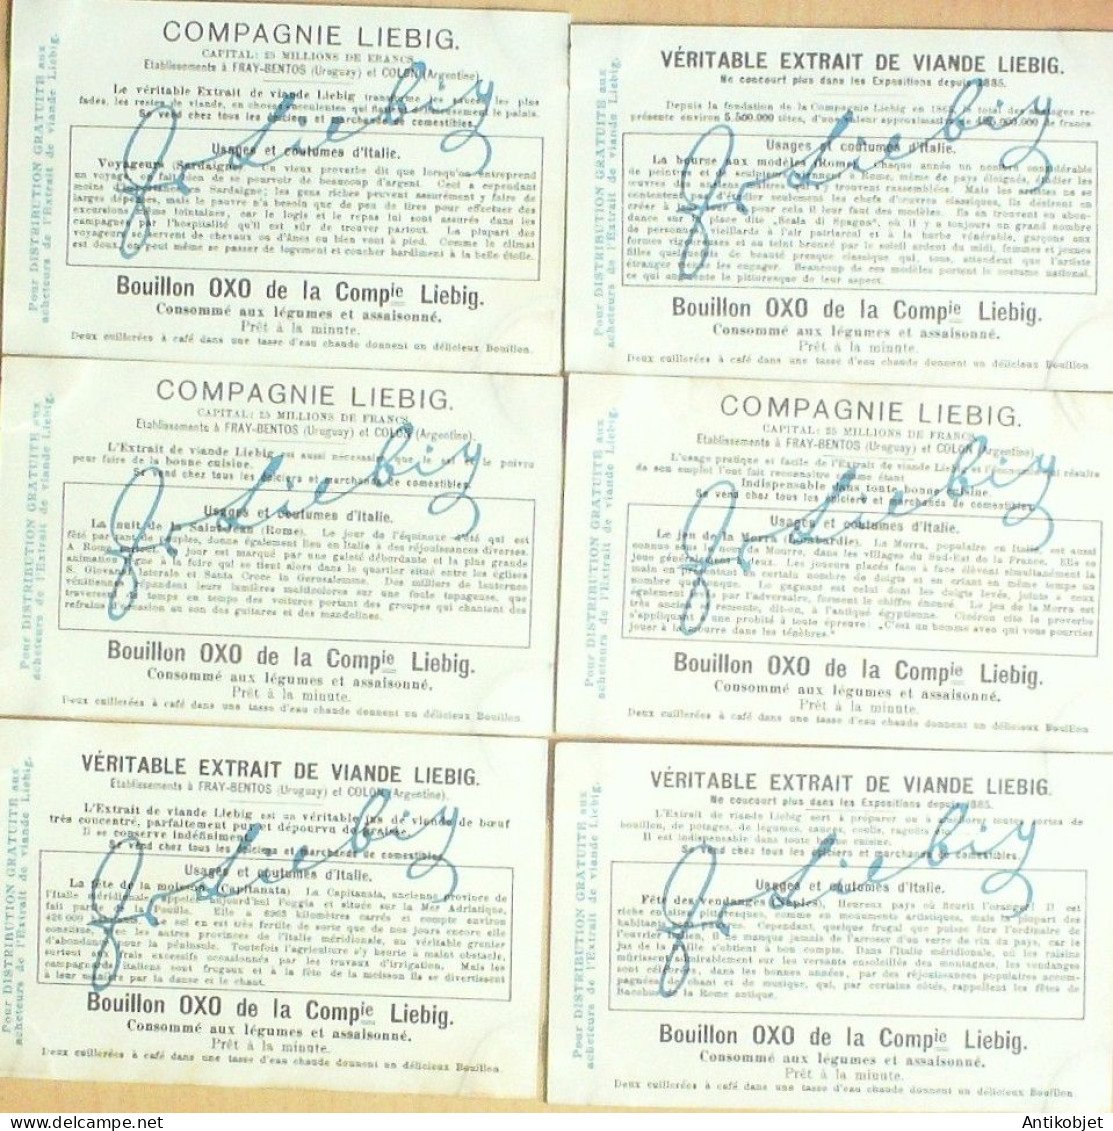 COMPAGNIE LIEBIG.
CAPITAL: 25 MILLIONS DE FRANCS
Etablissements à FRAY-BENTOS (Uruguay) et COLON (Argentine)
Le véritable Extrait de viande Liebig les plus
fades, les restes de viande, en choses succulentes qui le palais.
Se vend chez tous les épiciers et marchands de comestibles.
Usages et coutumes d'Italie.
Voyageurs (Sardaigne). Un vieux proverbe dit que lorsqu'on entreprend
un voyage, il fait bien de se pourvoir de beaucoup d'argent. Ceci a cependant
moins en Sardaigne; les gens riches peuvent assurément y faire de
larges dépenses, mais le pauvre n'a besoin que de peu de lires pour effectuer des
excursions même lointaines, car le logis et le repas lui sont assurés dans les
campagnes par l'hospitalité qu'il est sûr de trouver partout. La plupart des
voyageurs se servent de chevaux ou d'ânes ou bien vont à pied. Comme le climat
est doux, on peut même se passer de logement et coucher hardiment à la belle étoile.
Bouillon OXO de la Compie Liebig.
Consommé aux légumes et assaisonné.
Prêt à la minute.
Deux cuillerées à café dans une tasse d'eau chaude donnent un délicieux Bouillon.
Pour DISTRIBUTION GRATUITE aux
acheteurs de l'Extrait de viande Liebig.
VÉRITABLE EXTRAIT DE VIANDE LIEBIG.
Ne concourt plus dans les Expositions depuis 1885.
Depuis la fondation de la Compagnie Liebig en 1865, le total des re-
présente environ 5.500.000 têtes, d'une valeur approximative de francs.
Usages et coutumes d'Italie.
La bourse aux modèles (Rome). Chaque année un nombre considérable
de peintres et de sculpteurs à Rome, même de pays éloignés, les
œuvres d'art y trouvent rassemblées. Mais les artistes ne se
contentent pas d' seulement les chefs d'œuvres classiques, ils désirent en
créer pour cela il leur faut des modèles. Ils en trouvent en abon-
dance sur la place dite „Scala di Spagna", où il y a toujours un grand nombre
de personnes, vieillards à l'air patriarcal et à la barbe vénérable, garçons aux
formes vigoureuses et au teint bronzé par le soleil ardent du midi, femmes et jeunes
filles quelquefois de beauté presque classique qui, tous, attendent que l'artiste
étranger vienne les engager. Beaucoup de ces modèles portent le costume national,
ce qui augmente le pittoresque de leur aspect.
Bouillon OXO de la Compie Liebig.
Consommé aux légumes et assaisonné.
Prêt à la minute.
Deux cuillerées à café dans une tasse d'eau chaude donnent un délicieux Bouillon
Pour DISTRIBUTION GRATUITE aux
acheteurs de l'Extrait de viande Liebig.
COMPAGNIE LIEBIG.
CAPITAL: 25 MILLIONS DE FRANCS
Etablissements à FRAY-BENTOS (Uruguay) et COLON (Argentine).
L'Extrait de viande Liebig est aussi nécessaire que le sel et le poivre
pour faire de la bonne cuisine.
Se vend chez tous les épiciers et marchands de comestibles.
Usages et coutumes d'Italie.
La nuit de la Saint-Jean (Rome). Le jour de l'équinoxe d'été qui est
fêté par tant de peuples, donne également lieu en Italie à des réjouissances diverses.
A Rome, jour est marqué par une gaieté débordante et la plus grande
animation règne à la foire qui se tient alors dans le quartier situé entre les églises
S. Giovanni laterale et Santa Croce in Gerusalemme. Des milliers de lanternes
vénitiennes répandent leurs lumières multicolores sur une foule tapageuse, que
traversent de temps en temps des voitures portant des groupes qui chantent des
refrains d'occasion au son des guitares et des mandolines.
Bouillon OXO de la Compie Liebig.
Consommé aux légumes et assaisonné.
Prêt à la minute.
Deux cuillerées à café dans une tasse d'eau chaude donnent un délicieux Bouillon.
Pour DISTRIBUTION GRATUITE aux
acheteurs de l'Extrait de viande Liebig.
COMPAGNIE LIEBIG.
CAPITAL: 25 MILLIONS DE FRANCS
Etablissements à FRAY-BENTOS (Uruguay) et COLON (Argentine)
L'usage pratique et facile de l'Extrait de viande Liebig et l'économie qui résulte
de son emploi l'ont fait reconnaître comme étant
Indispensable dans toute bonne cuisine.
Se vend chez tous les épiciers et marchands de comestibles.
Usages et coutumes d'Italie.
Le jeu de la Morra (Lombardie). La Morra, populaire en Italie, est aussi
connue sous le nom de Mourre, dans les villages du Sud-Est de la France. Elle se
joue généralement à deux. Les joueurs placés face à face élèvent simultanément la
main en présentant un certain nombre de doigts et en criant en même temps un
nombre quelconque. Le gagnant est celui dont les doigts levés, joints à ceux
également levés par l'adversaire, forment le chiffre énoncé. Le jeu de la Morra est
très ancien et remonte, dit-on, à l'antiqué égyptienne. Cicéron cite le proverbe
s'appliquant à une probité à toute épreuve: „C'est un homme avec qui vous pourriez
jouer à la mourre dans les ténèbres."
Bouillon OXO de la Compie Liebig.
Consommé aux légumes et assaisonné.
Prêt à la minute.
Deux cuillerées à café dans une tasse d'eau chaude donnent un délicieux Bouillon
Pour DISTRIBUTION GRATUITE aux
acheteurs de l'Extrait de viande Liebig.
VÉRITABLE EXTRAIT DE VIANDE LIEBIG.
Etablissements à FRAY-BENTOS (Uruguay) et COLON (Argentine).
L'Extrait de viande Liebig est un véritable jus de viande de bœuf
très concentré, parfaitement pur et dépourvu de graisse.
Il se conserve indéfiniment.
Se vend chez tous les épiciers et marchands de comestibles.
Usages et coutumes d'Italie.
La fête de la moisson (Capitanata). La Capitanata, ancienne province de
l'Italie méridionale, appelée aujourd'hui Foggia et située sur la Mer Adriatique,
fait partie de la Pouille. Elle a 6963 kilomètres carrés et compte environ
426 000 Le sol en est très fertile de sorte que de nos jours encore elle
constitue, avec les autres provinces de l'Italie méridionale, un véritable grenier
d'abondance pour la péninsule. Toutefois l'agriculture s'y heurte à maint obstacle,
surtout aux frais excessifs occasionnés par les travaux d'irrigation. Mais les
campagnards italiens sont frugaux et à la fête de la moisson ils se divertissent
à leur manière par la danse et le chant.
Bouillon OXO de la Compie Liebig.
Consommé aux légumes et assaisonné.
Prêt à la minute.
Deux cuillerées à café dans une tasse d'eau chaude donnent un délicieux Bouillon.
Pour DISTRIBUTION GRATUITE aux
acheteurs de l'Extrait de viande Liebig.
VÉRITABLE EXTRAIT DE VIANDE LIEBIG.
Ne concourt plus dans les Expositions depuis 1885.
L'Extrait de viande Liebig sert à préparer ou à améliorer toutes sortes de
bouillon, de potages, de légumes, sauces, coulis, ragoûts etc.
Il est indispensable dans toute bonne cuisine.
Se vend chez tous les épiciers et marchands de comestibles.
Usages et coutumes d'Italie.
Fête des vendanges (Naples). Heureux pays où fleurit l'oranger! Il est
riche en sites pittoresques, comme en monuments artistiques, mais la plupart des
habitants Cependant, quelque frugal que puisse être l'ordinaire de
l'ouvrier italien, il ne manque jamais de l'arroser d'un verre de vin du pays, car le
jus de la treille s'obtient à bon compte. Dans l'Italie méridionale, où les raisins
mûrissent admirablement sur les versants ensoleillés des montagnes, les vendanges
sont célébrées, dans les bonnes années, par des réjouissances populaires accom-
pagnées de chant et de musique, qui, par certains côtés, rappellent les fêtes de
Bacchus de la Rome antique.
Bouillon OXO de la Compie Liebig.
Consommé aux légumes et assaisonné.
Prêt à la minute.
Deux cuillerées à café dans une tasse d'eau chaude donnent un délicieux Bouillon
Pour DISTRIBUTION GRATUITE aux
acheteurs de l'Extrait de viande Liebig.
Antikobjet